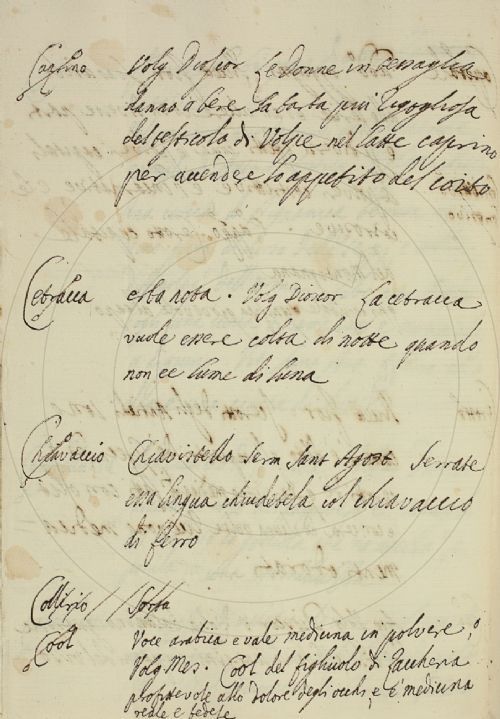 Caprino Volg Dioscor Le donne in Tessaglia
danno a bere la barba più rigogliosa
del testicolo di Volpe nel latte caprino
per accendere lo appetito del coito
Cetracca erba nota. Volg Dioscor La cetracca
vuole essere colta di notte quando
non ce lume di luna
Chiavaccio Chiavistello Serm Sant Agost Serrate
essa lingua chiudetela col chiavaccio
di ferro
Collirio // Sorta
Cool Voce arabica e vale medicina in polvere;
Volg Mes. Cool del figliuolo di Zaccheria
profittevole allo dolore degli occhi, e è medicina
reale e fedele